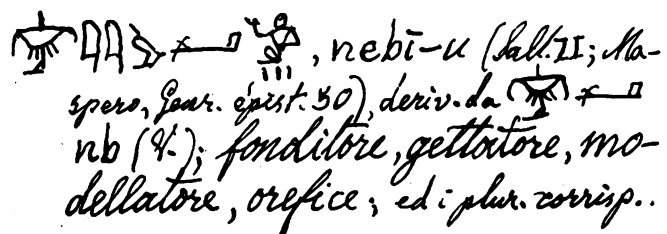 , nebī-u (Sall. II; Ma-
spero, Genr. épist. 50), deriv. da
nb (V.); fonditore, gettatore, mo-
dellatore, orefice; ed i plur. corrisp..